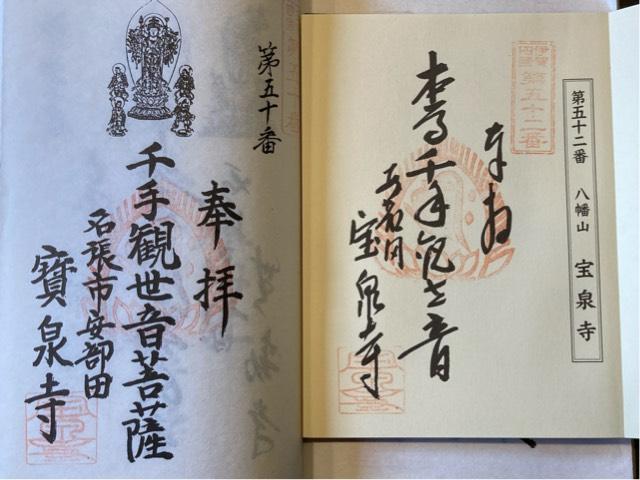 第五十二番　八幡山　宝泉寺
第五十二番
奉拝
本尊千手観世音
宝泉寺
第五十番
奉拝
千手観世音菩薩
名張市安部田
寶泉寺